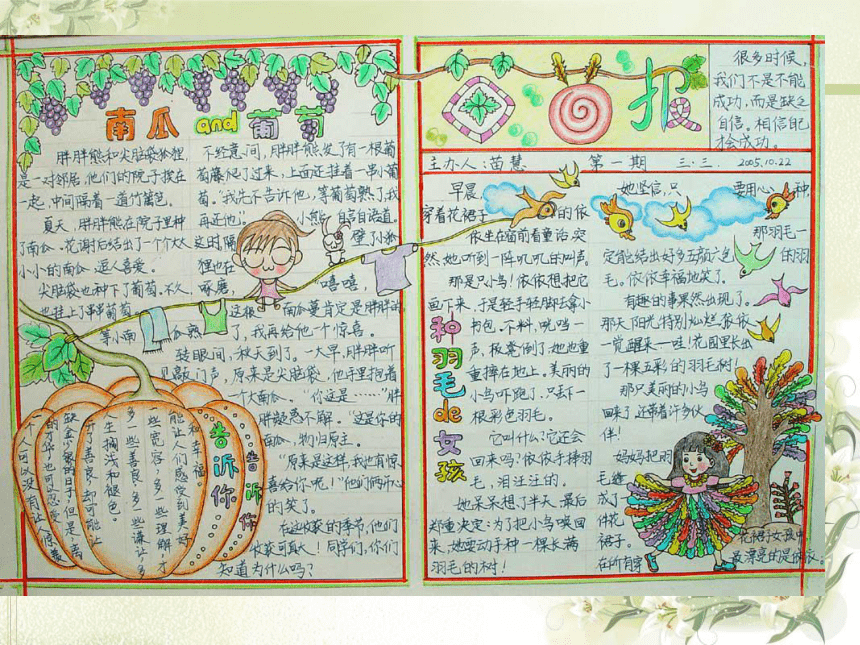 南瓜and葡萄
胖胖熊和尖脑袋狐狸
是一对邻居,他们的院子挨在
一起,中间隔着一道竹篱笆。
夏天,胖胖熊在院子里种
了南瓜。花谢后结出了一个个大大
小小的南瓜,逗人喜爱。
尖脑袋也种下了葡萄。不久,
也挂上了串串葡萄。
不经意间,胖胖熊发了有一根葡
萄藤爬了过来,上面还挂着一串小葡
萄。“我先不告诉他,等葡萄熟了,我
再还他。”小熊自言自语道。
这时,隔壁小狐
狸也在
琢磨,“嘻嘻,
这根南瓜蔓肯定是胖胖的
等小南瓜熟了,我再给他一个惊喜。
转眼间,秋天到了。一大早,胖胖听
见敲门声,原来是尖脑袋,他手里抱着
一个大南瓜。“你这是……”胖
胖疑惑不解。“这是你的
南瓜,物归原主。
“原来是这样,我也有惊
喜给你呢!”他们俩开心
的笑了。
在这收获的季节,他们
收获可真大!同学们,你们
知道为什么吗?
告诉你
告诉你
个人可以没有让人惊羡
的才华,也可以忍受
缺金少银的日子,但是,离
开了善良,却可能让
生搁浅和褪色。
多一些善良,多一些谦让,多
一些宽容,多一些理解,才
能让人们感受到美好
和幸福。
报
很多时候,
我们不是不能
成功,而是缺乏
自信。相信自己
才会成功。
主办人:苗慧 第一期 三.三. 2005.10.22
种羽毛de女孩
早晨,
穿着花裙子的依
依坐在窗前看童话,突
然,她听到一阵叽叽的叫声。
那是只小鸟!依依想把它
画下来,于是轻手轻脚去拿小
书包。不料,咣当一
声,板凳倒了,她也重
重摔在地上。美丽的
小鸟吓跑了,只丢下一
根彩色羽毛。
它叫什么?它还会
回来吗?依依手捧羽
毛,泪汪汪的。
她呆呆想了半天,最后
郑重决定:为了把小鸟唤回
来,她要动手种一棵长满
羽毛的树!
她坚信,只要用心种,
那羽毛一
定能结出好多五颜六色的羽
毛。依依幸福地笑了。
有趣的事果然出现了。
那天,阳光特别灿烂,依依
一觉醒来—哇!花园里长出
了一棵五彩的羽毛树!
那只美丽的小鸟
回来了,还带着许多伙
伴!
妈妈把羽
毛缝
成了一
件花
裙子。
在所有穿
花裙子女孩中,
最漂亮的是依依。